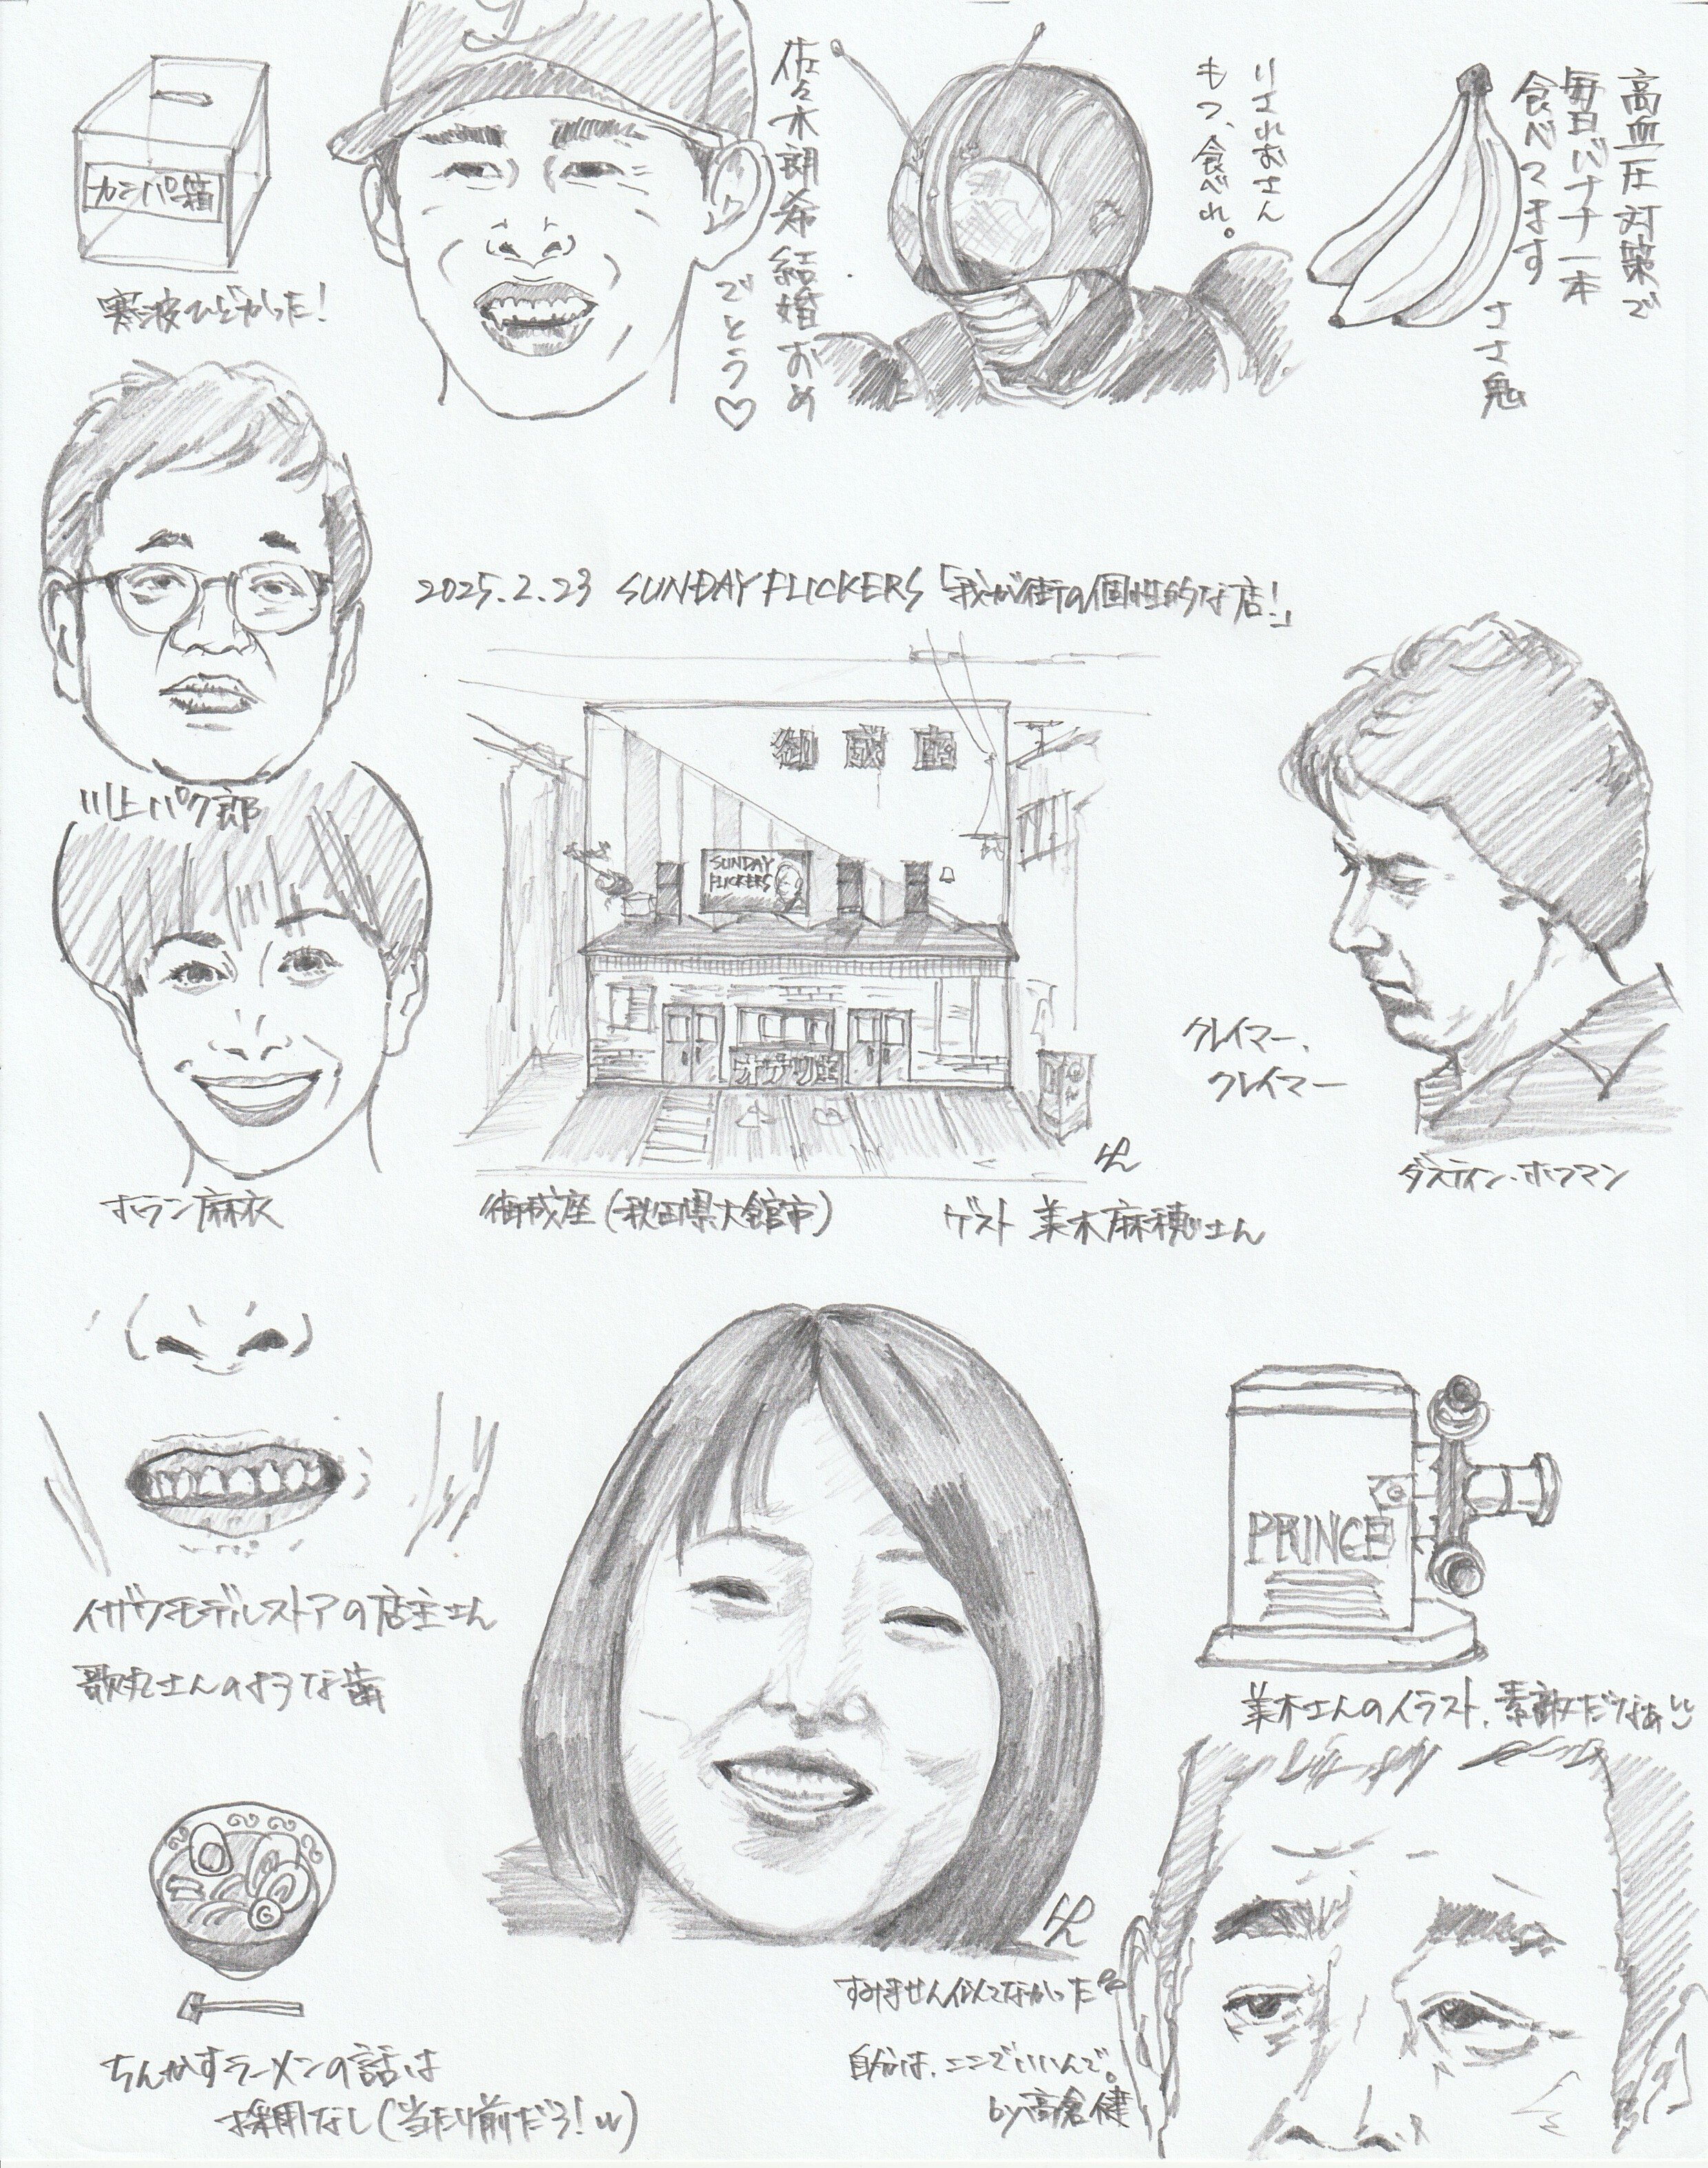 カンパ箱
寒波ひどかった！
佐々木朗希結婚おめ
でとう♡
りさねおさん
もつ、食べれ。
高血圧対策で
毎日バナナ一本
食べてます
ササ鬼
川上パク郎
2025.2.23 SUNDAY FLICKERS「我が街の個性的な店！」
御成座
SUNDAY
FLICKERS
オナリ座
クレイマー、
クレイマー
ダスティン・ホフマン
ホラン麻衣
御成座（秋田県大館市）
ゲスト 美木麻穂さん
イガワモデルストアの店主さん
歌丸さんのような歯
PRINCE
美木さんのイラスト、素敵だなぁ!!
ちんかすラーメンの話は
採用なし（当たり前だろ！w）
すみません似てなかった
自分は、ここでいいんで。
by高倉健